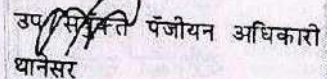 उप/सयुंक्त पंजीयन अधिकारी
थानेसर